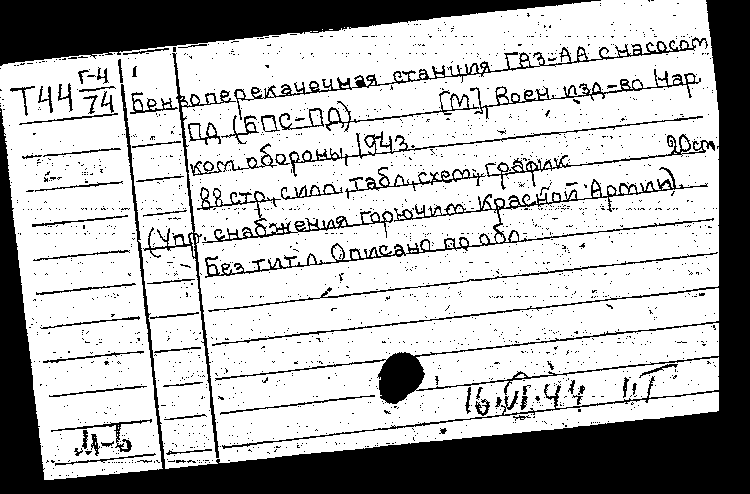 Т44 Г-4/74
Бензоперекачечная станция ГАЗ-АА с насосом
ПД (БПС-ПД). [М], Воен. изд-во Нар.
ком. обороны, 1943.
88 стр., с илл., табл., схем., график 20 см.
(Упр. снабжения горючим Красной Армии).
Без тит. л. Описано по обл.
16.VI.44